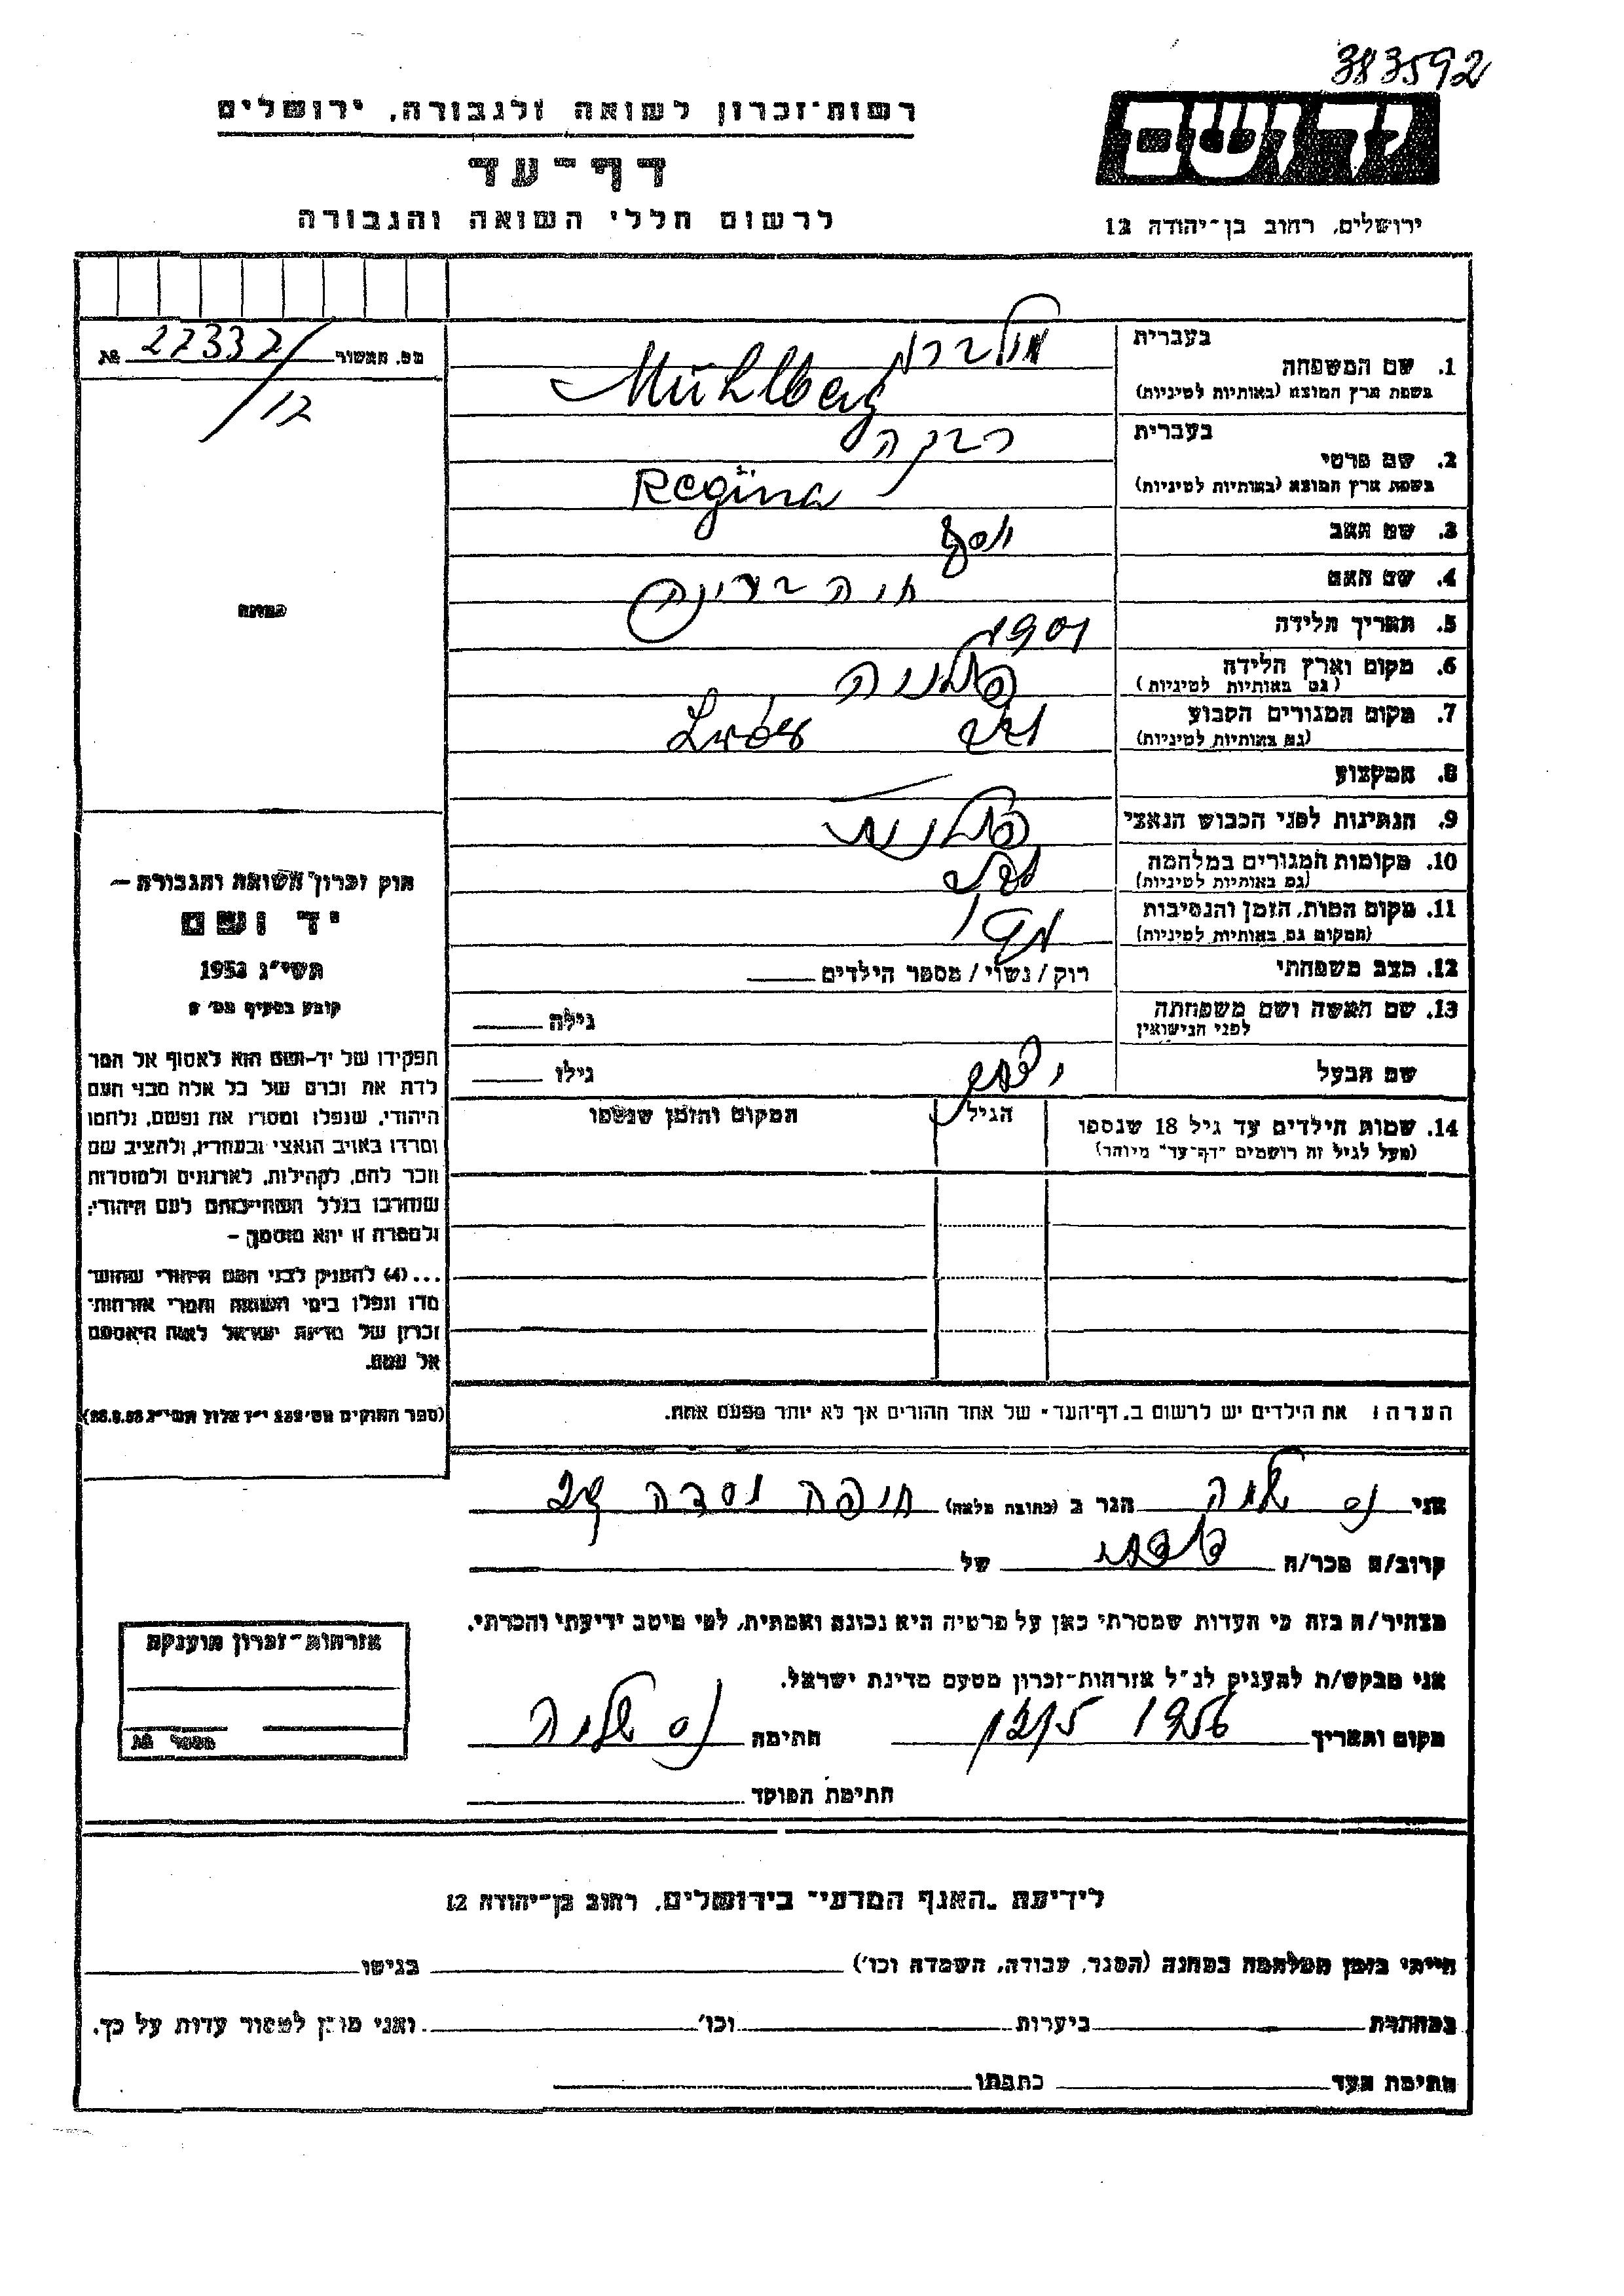 383592
רשות-זכרון לשואה ולגבורה, ירושלים
יד ושם
דף-עד
לרשום חללי השואה והגבורה
ירושלים, רחוב בן-יהודה 12
מס. האשור 22337/12 №
בעברית
1. שם המשפחה מילברג
בשפת ארץ המוצא (באותיות לטיניות) Mühlberg
בעברית
2. שם פרטי רבקה
בשפת ארץ המוצא (באותיות לטיניות) Regina
3. שם האב יוסף
4. שם האם חיה
5. תאריך הלידה 1901
6. מקום וארץ הלידה פולניה
(גם באותיות לטיניות)
7. מקום המגורים הקבוע לבוב Lwów
(גם באותיות לטיניות)
8. המקצוע —
9. הנתינות לפני הכבוש הנאצי פולנית
10. מקומות המגורים במלחמה לבוב
(גם באותיות לטיניות)
11. מקום המות, הזמן והנסיבות
(המקום גם באותיות לטיניות)
12. מצב משפחתי רוק / נשוי / מספר הילדים
13. שם האשה ושם משפחתה גילה
לפני הנישואין
שם הבעל גילו
14. שמות הילדים עד גיל 18 שנספו הגיל המקום והזמן שנספו
(מעל לגיל זה רושמים "דף-עד" מיוחד)
הערה: את הילדים יש לרשום ב"דף-העד" של אחד ההורים אך לא יותר מפעם אחת.
תמונה
חוק זכרון השואה והגבורה —
יד ושם
תשי"ג 1953
קובע בסעיף מס' 2
תפקידו של יד-ושם הוא לאסוף אל המו
לדת את זכרם של כל אלה מבני העם
היהודי, שנפלו ומסרו את נפשם, נלחמו
ומרדו באויב הנאצי ובעוזריו, ולהציב שם
וזכר להם, לקהילות, לארגונים ולמוסדות
שנחרבו בגלל השתייכותם לעם היהודי;
ולמטרה זו יהא מוסמך —
...(4) להעניק לבני העם היהודי שהוש
מדו ונפלו בימי השואה והמרי אזרחות-
זכרון של מדינת ישראל לאות היאספם
אל עמם.
(ספר החוקים מס' 132 י"ז אלול תשי"ג 28.8.53)
אני הגר ב (כתובת מלאה) חיפה
קרוב/ה מכר/ה של
מצהיר/ה בזה כי העדות שמסרתי כאן על פרטיה היא נכונה ואמתית, לפי מיטב ידיעתי והכרתי.
אני מבקש/ת להעניק לנ"ל אזרחות-זכרון מטעם מדינת ישראל.
מקום ותאריך 1956 חתימה
חתימת הפוקד
אזרחות-זכרון הוענקה
מספר №
לידיעת "האגף המדעי" בירושלים, רחוב בן-יהודה 12
הייתי בזמן המלחמה במחנה (הסגר, עבודה, השמדה וכו') בגיטו
במחתרת ביערות וכו' ואני מוכן למסור עדות על כך.
חתימת העד כתבתו